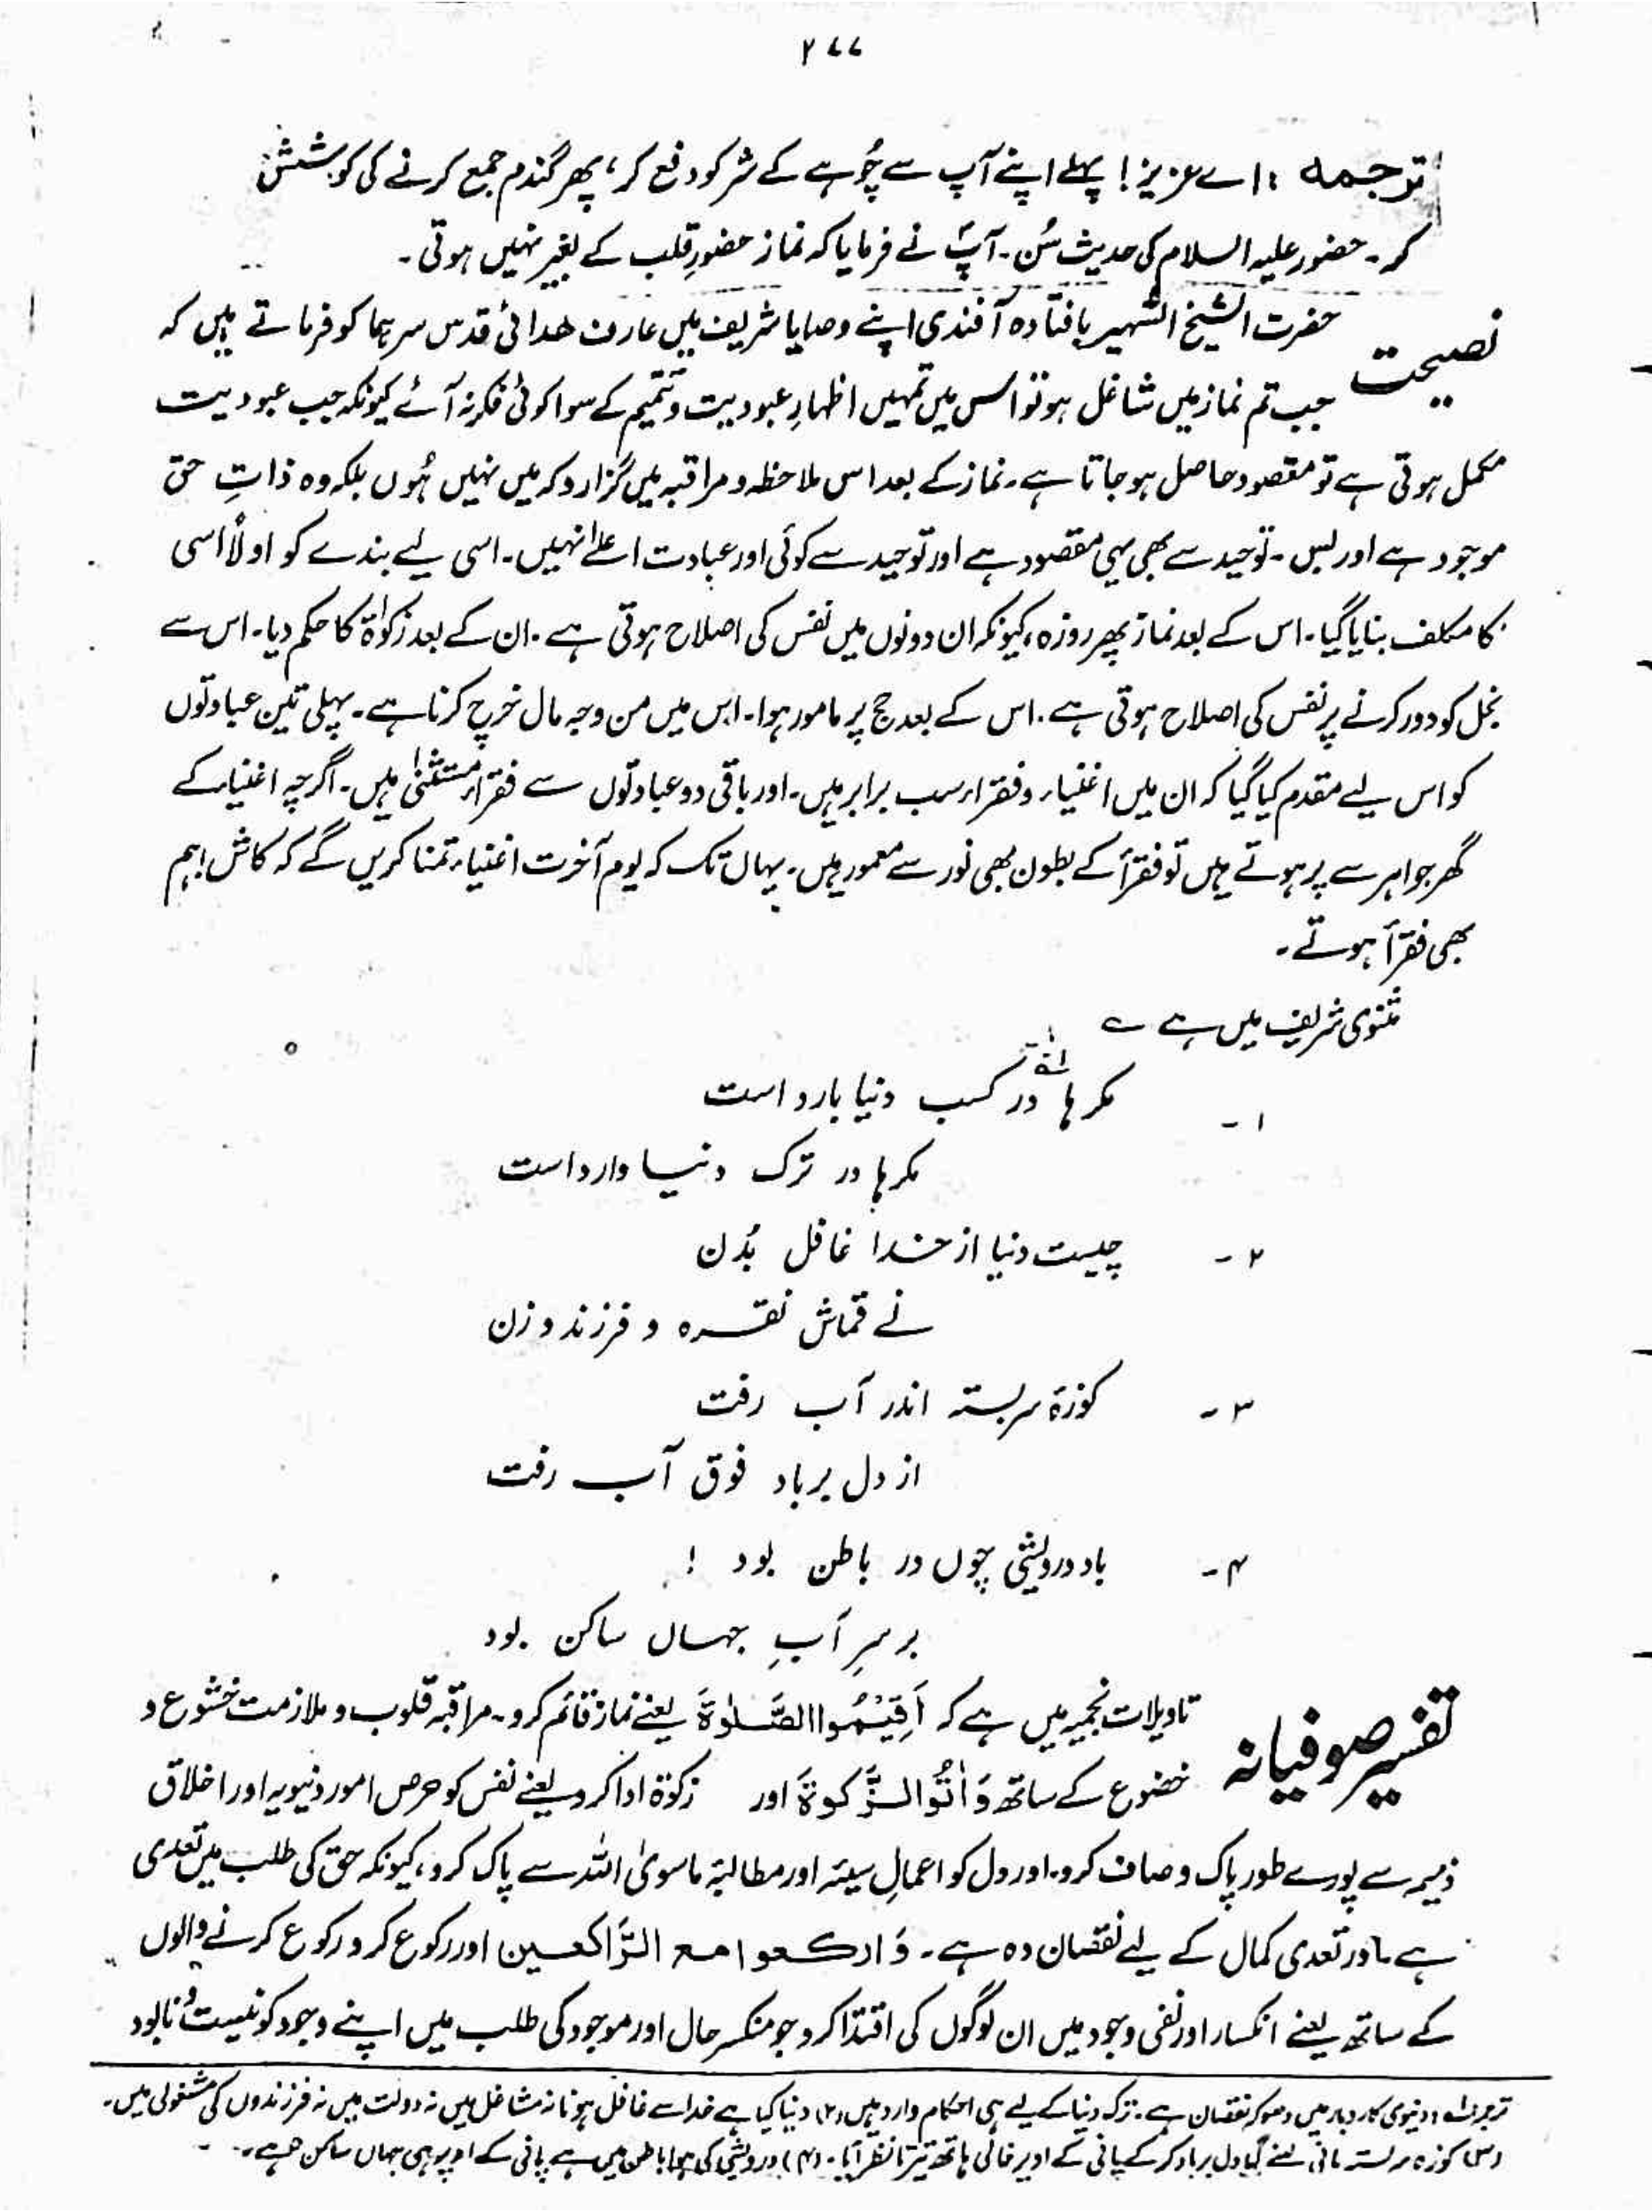 ۲۷۷
ترجمہ : اے عزیز! پہلے اپنے آپ سے چُوہے کے شر کو دفع کر، پھر گندم جمع کرنے کی کوشش
کر۔ حضور علیہ السلام کی حدیث سُن۔ آپؐ نے فرمایا کہ نماز حضورِ قلب کے بغیر نہیں ہوتی۔
نصیحت
حضرت الشیخ الشہیر بافتادہ آفندی اپنے وصایا شریف میں عارف ھدائی قدس سرہما کو فرماتے ہیں کہ
جب تم نماز میں شاغل ہو تو اس میں تمہیں اظہارِ عبودیت و تتمیم کے سوا کوئی فکر نہ آئے کیونکہ جب عبودیت
مکمل ہوتی ہے تو مقصود حاصل ہو جاتا ہے۔ نماز کے بعد اس ملاحظہ و مراقبہ میں گزارو کہ میں نہیں ہُوں بلکہ وہ ذاتِ حق
موجود ہے اور بس۔ توحید سے بھی یہی مقصود ہے اور توحید سے کوئی اور عبادت اعلےٰ نہیں۔ اسی لیے بندے کو اولًا اسی
کا مکلف بنایا گیا۔ اس کے بعد نماز پھر روزہ، کیونکہ ان دونوں میں نفس کی اصلاح ہوتی ہے۔ ان کے بعد زکوٰۃ کا حکم دیا۔ اس سے
بخل کو دور کرنے پر نفس کی اصلاح ہوتی ہے۔ اس کے بعد حج پر مامور ہوا۔ اس میں من وجہ مال خرچ کرنا ہے۔ پہلی تین عبادتوں
کو اس لیے مقدم کیا گیا کہ ان میں اغنیاء و فقراء سب برابر ہیں۔ اور باقی دو عبادتوں سے فقراء مستثنیٰ ہیں۔ اگرچہ اغنیاء کے
گھر جواہر سے پر ہوتے ہیں تو فقرأ کے بطون بھی نور سے معمور ہیں۔ یہاں تک کہ یوم آخرت اغنیاء تمنا کریں گے کہ کاش! ہم
بھی فقرأ ہوتے۔
مثنوی شریف میں ہے ؎
۱۔ مکرہا در کسب دنیا بارد است
مکرہا در ترک دنیا وارد است
۲۔ چیست دنیا از خدا غافل بُدن
نے قماش نقرہ و فرزند و زن
۳۔ کوزۂ سربستہ اندر آب رفت
از دل برباد فوق آب رفت
۴۔ باد درویشی چوں در باطن بود !
بر سرِ آبِ جہاں ساکن بود
تفسیر صوفیانہ
تاویلات نجمیہ میں ہے کہ اَقِیْمُوا الصَّلٰوۃَ یعنے نماز قائم کرو۔ مراقبہ قلوب و ملازمت خشوع و
خضوع کے ساتھ وَاٰتُوا الزَّکوۃَ اور زکوٰۃ ادا کرو یعنے نفس کو حرص امور دنیویہ اور اخلاق
ذمیمہ سے پورے طور پاک و صاف کرو۔ اور دل کو اعمالِ سیئہ اور مطالبۂ ماسویٰ اللہ سے پاک کرو، کیونکہ حق کی طلب میں تعدی
ہے۔ اور تعدی کمال کے لیے نقصان دہ ہے۔ وَارکعوا مع الرَّاکعین اور رکوع کرو رکوع کرنے والوں
کے ساتھ یعنے انکسار اور نفی وجود میں ان لوگوں کی اقتدا کرو جو منکسر حال اور موجود کی طلب میں اپنے وجود کو نیست و نابود
دنیوی کاروبار میں دھوکہ نقصان ہے۔ ترک دنیا کے لیے ہی احکام وارد ہیں (۲) دنیا کیا ہے خدا سے غافل ہونا نہ مشاغل میں نہ دولت میں نہ فرزندوں کی مشغولی میں۔
(۳) کوزہ سربستہ پانی لینے گیا دل برباد کر کے پانی کے اوپر خالی ہاتھ تیرتا نظر آیا۔ (۴) درویشی کی ہوا باطن میں ہے پانی کے اوپر ہی جہاں ساکن ہے۔